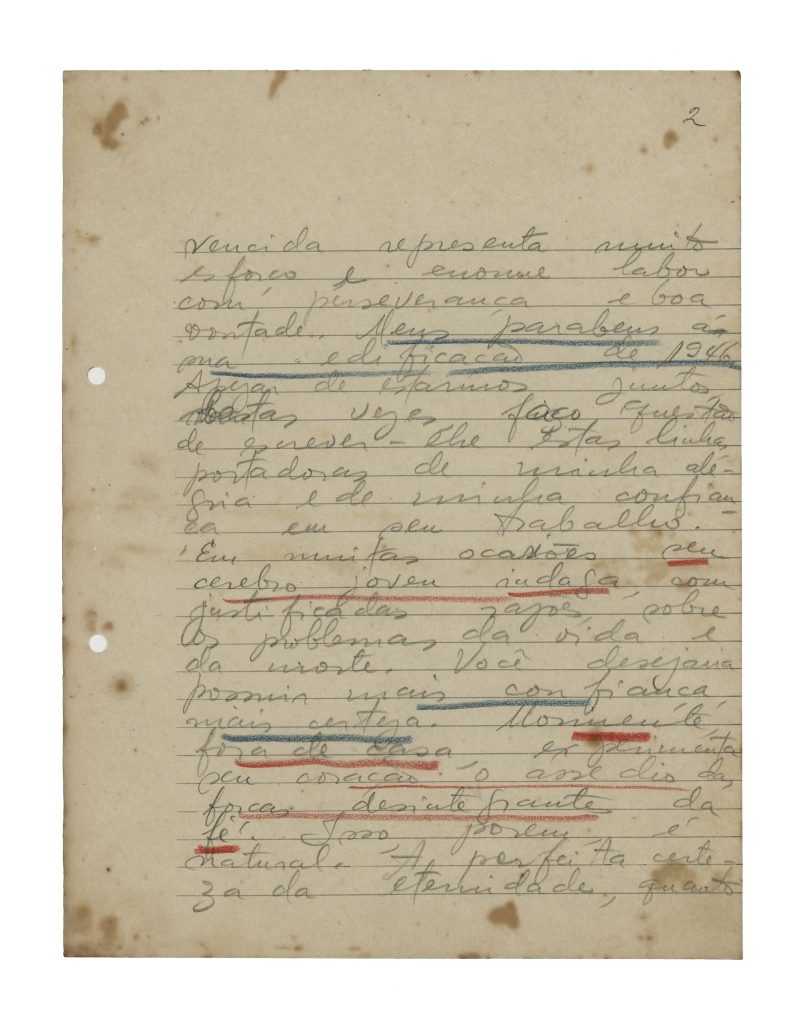 2
vencida representa muito
esforço e enorme labor
com perseverança e boa
vontade. Meus parabens á
sua edificação de 1946.
Apezar de estarmos juntos
bastas vezes faço questão
de escrever-lhe estas linhas
portadoras de minha ale-
gria e de minha confian
ça em seu trabalho. -
Em muitas ocasiões seu
cerebro joven indaga, com
justificadas razões, sobre
os problemas da vida e
da morte. Você desejaria
possuir mais confiança,
mais certeza. Mormente,
fóra de casa experimenta
seu coração o assedio das
forças desintegrantes da
fé. Isso, porem, é
natural. A perfeita certe-
za da eternidade, quanto